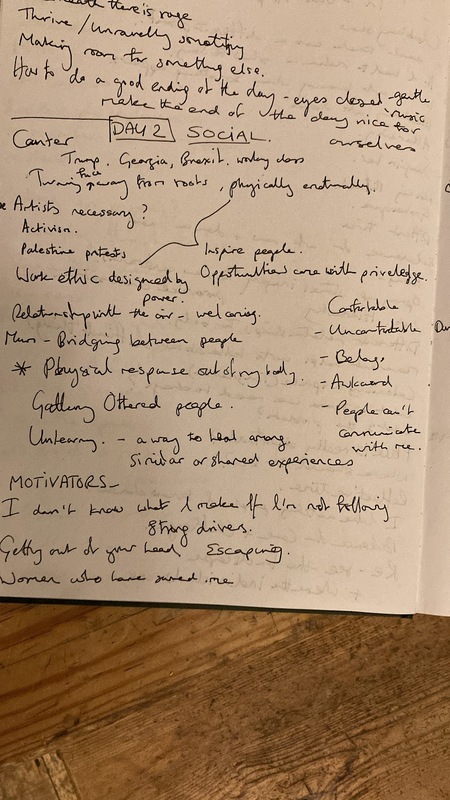 there is rage
Thrive / Unravelling something
Making room for something else.
How to do a good ending of the day - eyes closed - gentle music
make the end of the day nice for ourselves
DAY 2 SOCIAL.
Canter
Trump, Georgia, Brexit, working class
Turning face away from roots, physically and mentally.
Artists necessary?
Activism.
Palestine protests
Inspire people.
Work ethic designed by power.
Opportunities come with priveledge.
Relationship with the air - welcoming.
Mum - Bridging between people
* Physical response out of my body.
Gathering Othered people.
Unlearning. - a way to heal among
similar or shared experiences
Comfortable
- Uncomfortable
- Belong
- Awkward
- People can't
communicate
with me.
MOTIVATORS -
I don't know what I make if I'm not following
strong drivers.
Getting out of your head Escaping.
Women who have saved me